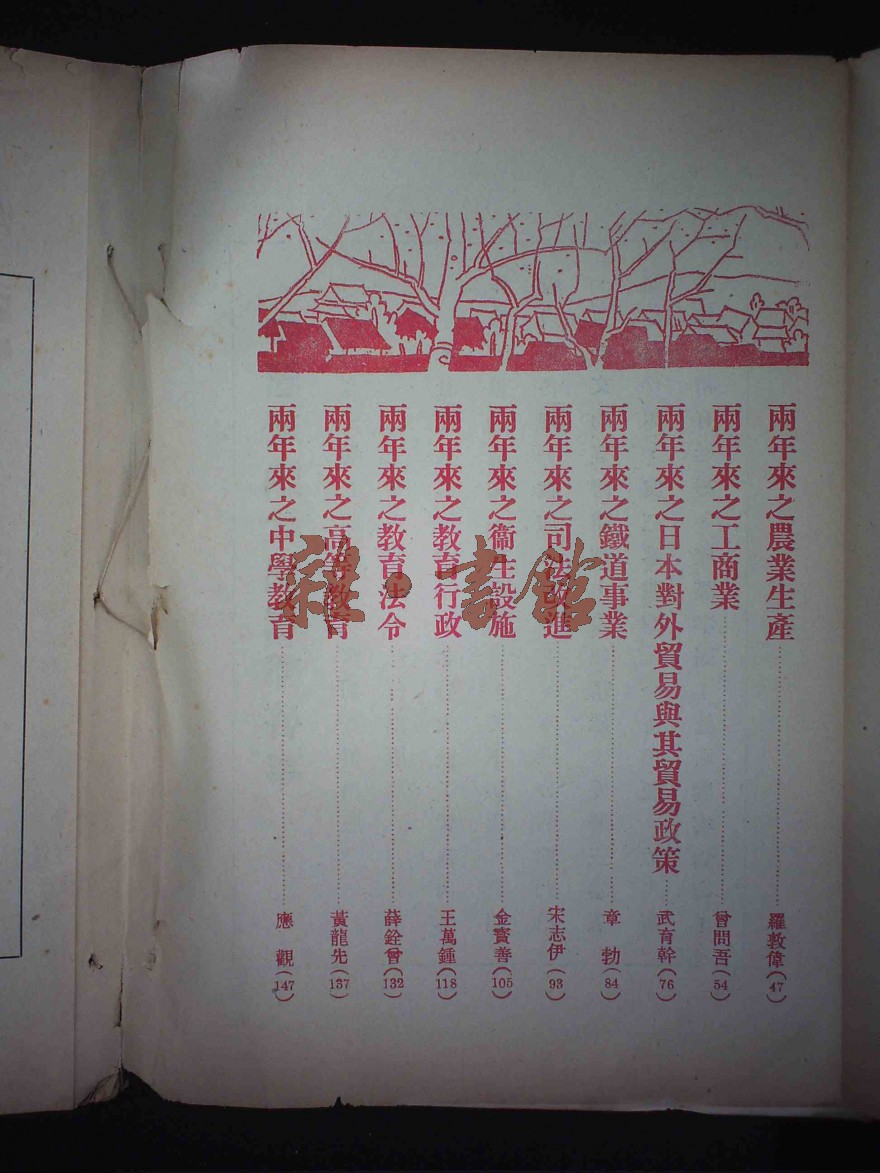 兩年來之農業生產 羅敦偉(47)
兩年來之工商業 曾問吾(54)
兩年來之日本對外貿易與其貿易政策 武育幹(76)
兩年來之鐵道事業 章勃(84)
兩年來之司法改進 宋志伊(93)
兩年來之衞生設施 金寶善(105)
兩年來之教育行政 王萬鍾(118)
兩年來之教育法令 薛銓曾(132)
兩年來之高等教育 黃龍先(137)
兩年來之中學教育 應觀(147)
雜·書館